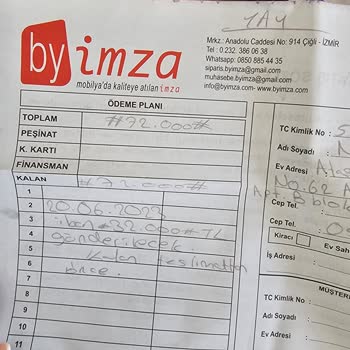 YAY
by imza
mobilya'da kaliteye atılan imza
Mrkz.: Anadolu Caddesi No: 914 Çiğli - İZMİR
Tel : 0 232. 386 06 38
Whatsapp: 0850 885 44 35
siparis.byimza@gmail.com
muhasebe.byimza@gmail.com
info@byimza.com- www.byimza.com
ÖDEME PLANI
TOPLAM #72.000#
PEŞİNAT
K. KARTI
FİNANSMAN
KALAN #72.000#
1
2 20.06.2022
3 iban #32.000# TL
4 gönderilecek
5 Kalan teslimattan
6 önce
7
8
9
10
11
TC Kimlik No :
Adı Soyadı :
Ev Adresi
No: 62
Apt B blok
Cep Tel :
Cep Tel.
Kiracı Ev Sah
İş Adresi :
MÜŞTER
TC Kimlik No :
Adı Soyadı :
Ev Adresi :